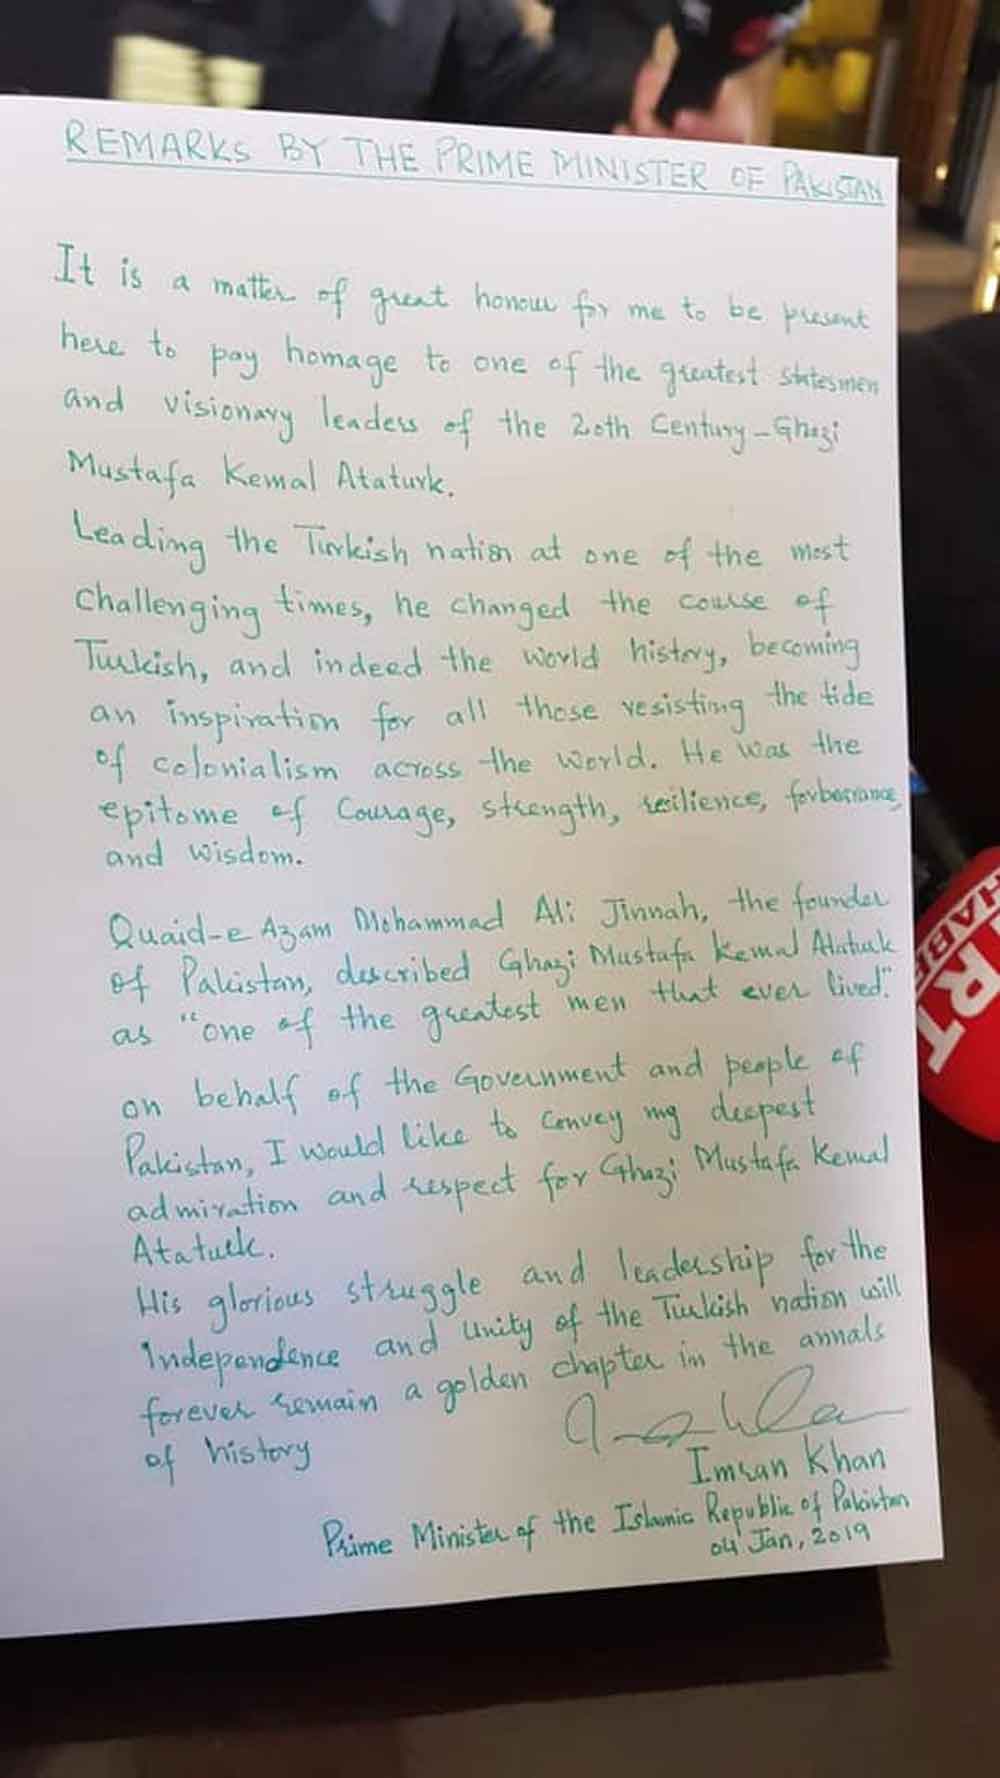 REMARKS BY THE PRIME MINISTER OF PAKISTAN
It is a matter of great honour for me to be present
here to pay homage to one of the greatest statesmen
and visionary leaders of the 20th Century-Ghazi
Mustafa Kemal Ataturk.
Leading the Turkish nation at one of the most
challenging times, he changed the course of
Turkish, and indeed the world history, becoming
an inspiration for all those resisting the tide
of colonialism across the world. He was the
epitome of Courage, strength, resilience, forbearance,
and wisdom.
Quaid-e Azam Mohammad Ali Jinnah, the founder
of Pakistan, described Ghazi Mustafa Kemal Ataturk
as "one of the greatest men that ever lived."
on behalf of the Government and people of
Pakistan, I would like to convey my deepest
admiration and respect for Ghazi Mustafa Kemal
Ataturk.
His glorious struggle and leadership for the
Independence and Unity of the Turkish nation will
forever remain a golden chapter in the annals
of history
Imran Khan
Prime Minister of the Islamic Republic of Pakistan
04 Jan, 2019
TRT
HABER